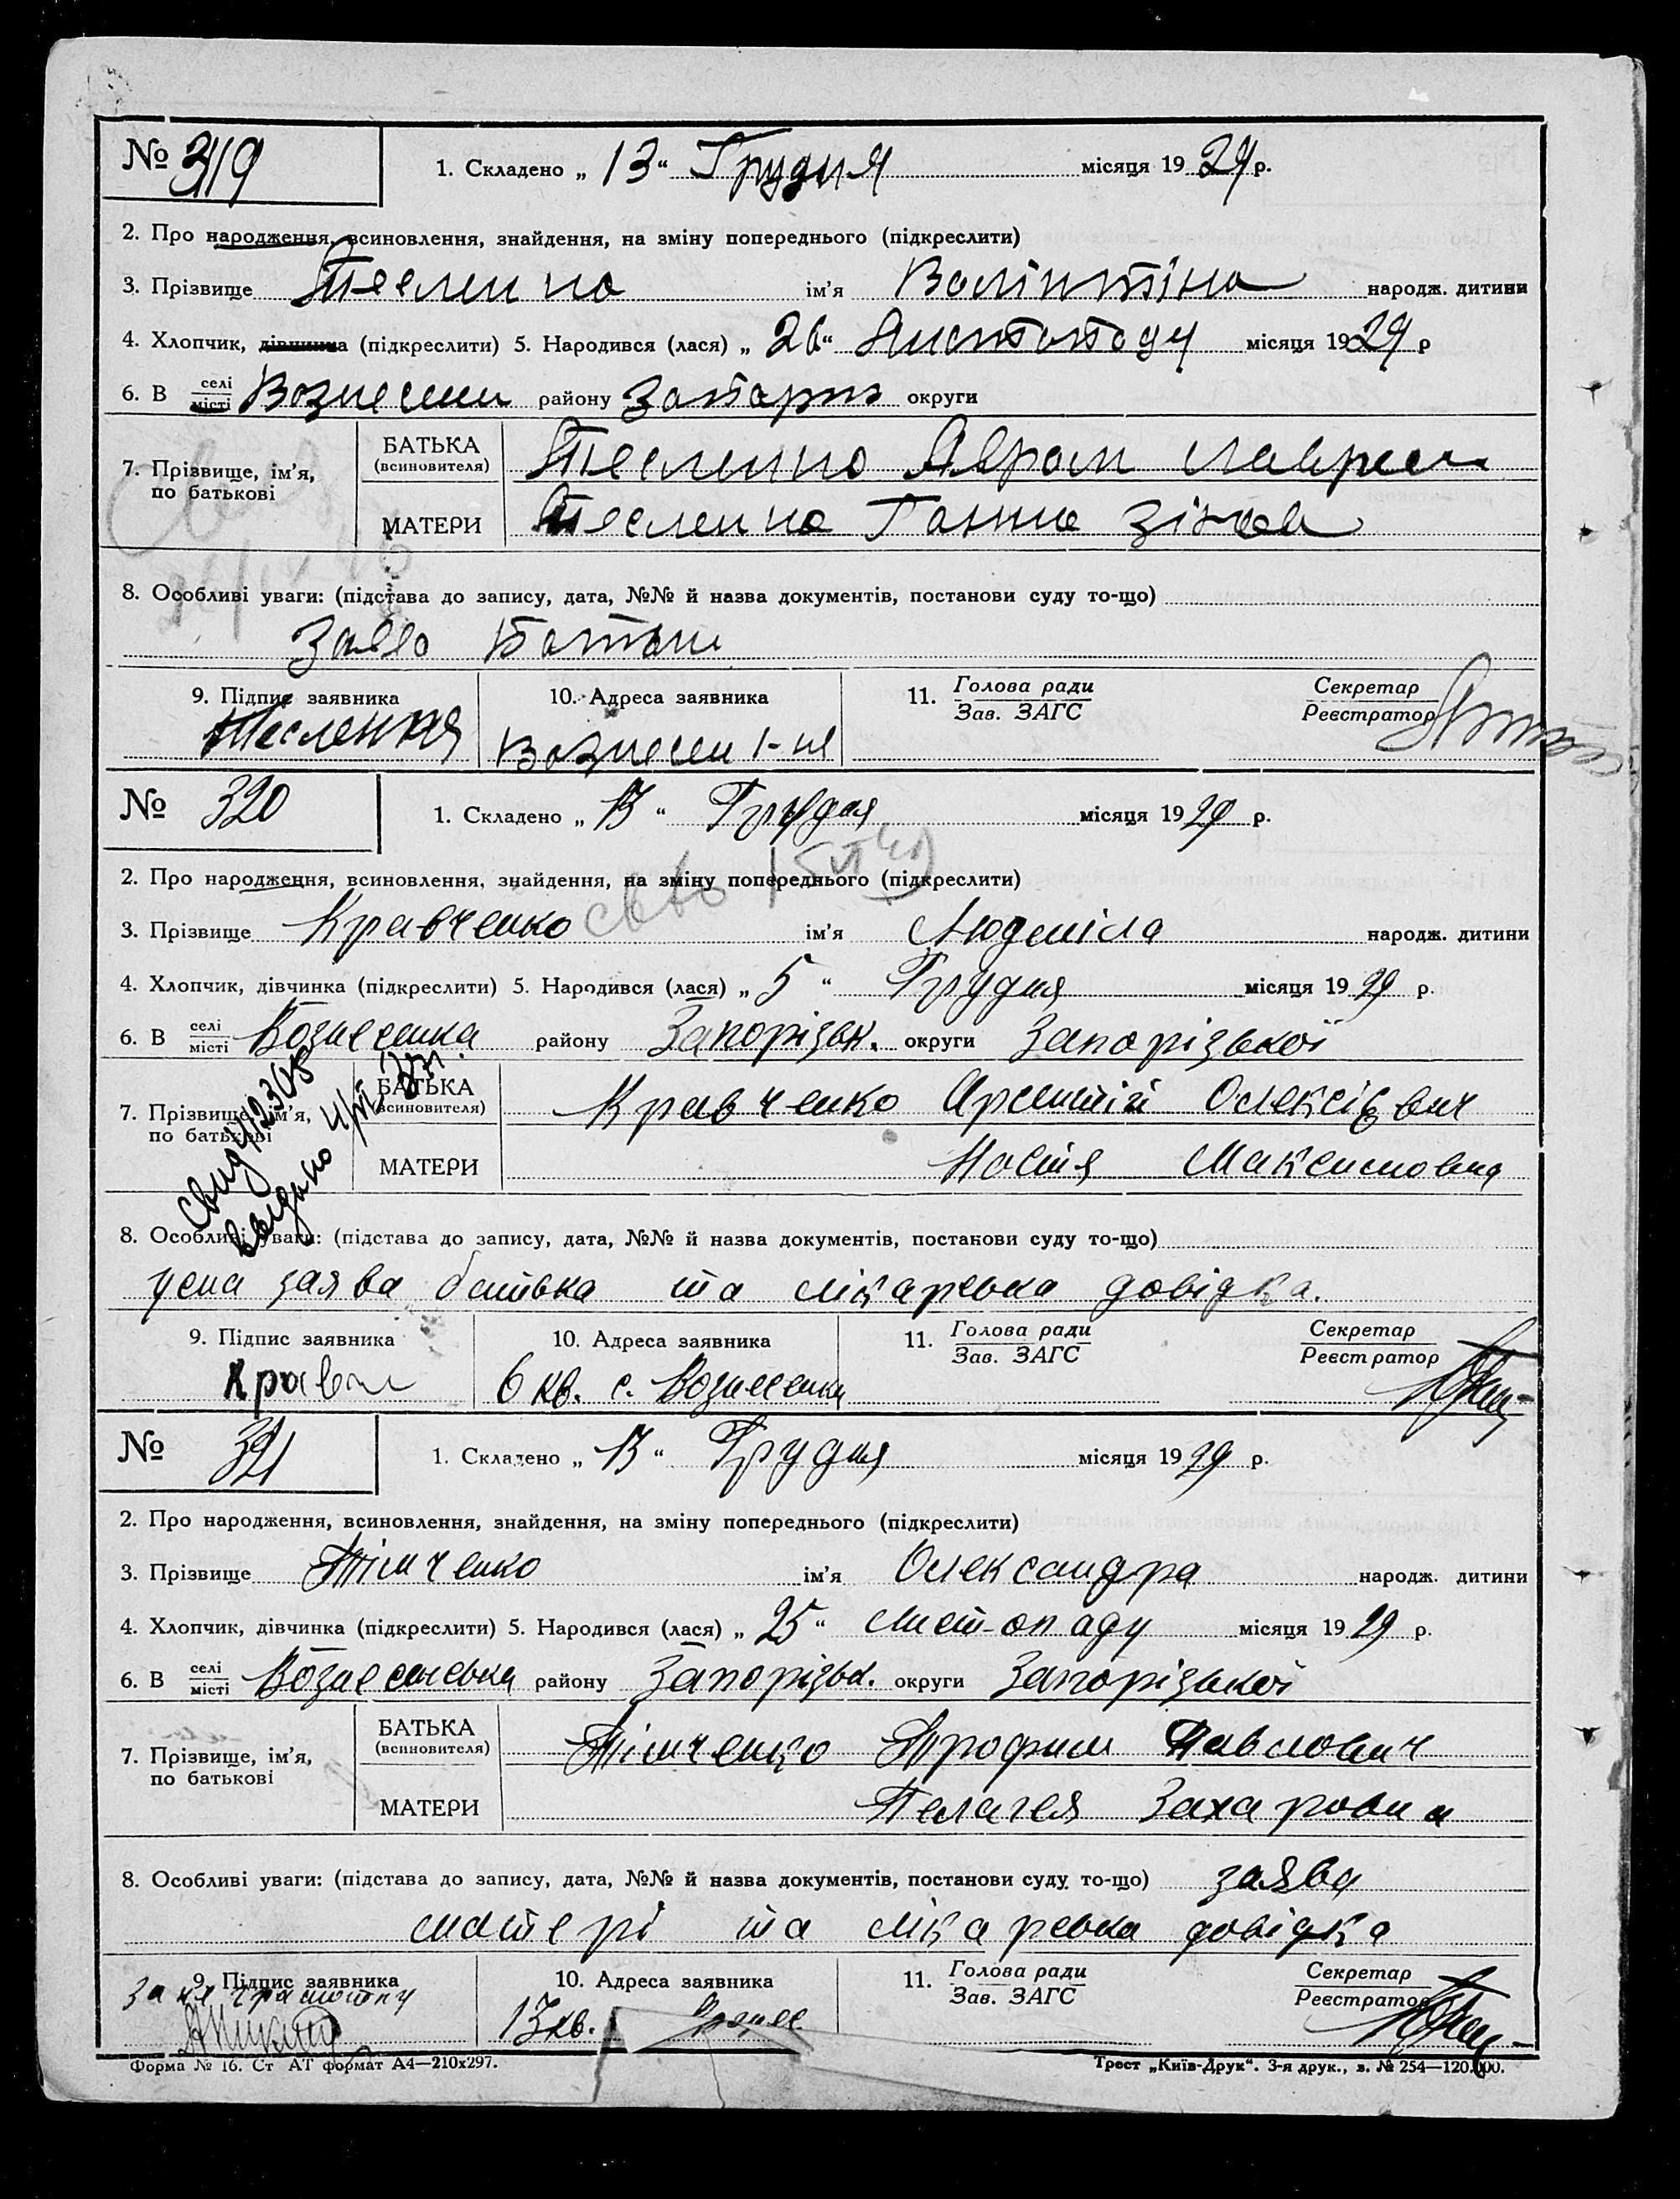 № 319 1. Складено „ 13 “ Грудня місяця 19 29 р.
2. Про народження, всиновлення, знайдення, на зміну попереднього (підкреслити)
3. Прізвище Тесленко ім'я Валінтіна народж. дитини
4. Хлопчик, дівчинка (підкреслити) 5. Народився (лася) „ 26 “ Листопаду місяця 19 29 р
6. В селі місті Вознесен району Запоріз округи
7. Прізвище, ім'я, по батькові БАТЬКА (всиновителя) Тесленко Аврам Лаврен
МАТЕРИ Тесленко Ганна Зінов
8. Особливі уваги: (підстава до запису, дата, №№ й назва документів, постанови суду то-що)
Заява Батьки
9. Підпис заявника 10. Адреса заявника 11. Голова ради Зав. ЗАГС Секретар Реєстратор
Тесленко Вознесен 1-ша
№ 320 1. Складено „ 13 “ Грудня місяця 19 29 р.
2. Про народження, всиновлення, знайдення, на зміну попереднього (підкреслити)
3. Прізвище Кравченко ім'я Людміла народж. дитини
4. Хлопчик, дівчинка (підкреслити) 5. Народився (лася) „ 5 “ Грудня місяця 19 29 р.
6. В селі місті Вознесенка району Запорізьк. округи Запорізької
7. Прізвище, ім'я, по батькові БАТЬКА (всиновителя) Кравченко Арсентій Олексієвич
МАТЕРИ Настя Максимовна
8. Особливі уваги: (підстава до запису, дата, №№ й назва документів, постанови суду то-що)
усна заява батька та лікарська довідка.
9. Підпис заявника 10. Адреса заявника 11. Голова ради Зав. ЗАГС Секретар Реєстратор
Кравч 6 кв. с. Вознесенки
№ 321 1. Складено „ 13 “ Грудня місяця 19 29 р.
2. Про народження, всиновлення, знайдення, на зміну попереднього (підкреслити)
3. Прізвище Тімченко ім'я Олександра народж. дитини
4. Хлопчик, дівчинка (підкреслити) 5. Народився (лася) „ 25 “ листопаду місяця 19 29 р.
6. В селі місті Вознесенська району Запорізьк. округи Запорізької
7. Прізвище, ім'я, по батькові БАТЬКА (всиновителя) Тімченко Трофим Павлович
МАТЕРИ Пелагея Захаровна
8. Особливі уваги: (підстава до запису, дата, №№ й назва документів, постанови суду то-що) заява
матері та лікарська довідка
9. Підпис заявника 10. Адреса заявника 11. Голова ради Зав. ЗАГС Секретар Реєстратор
за не грамотну
13 кв.
Форма № 16. Ст АТ формат А4—210x297. Трест „Київ-Друк“. 3-я друк., з. № 254—120.000.